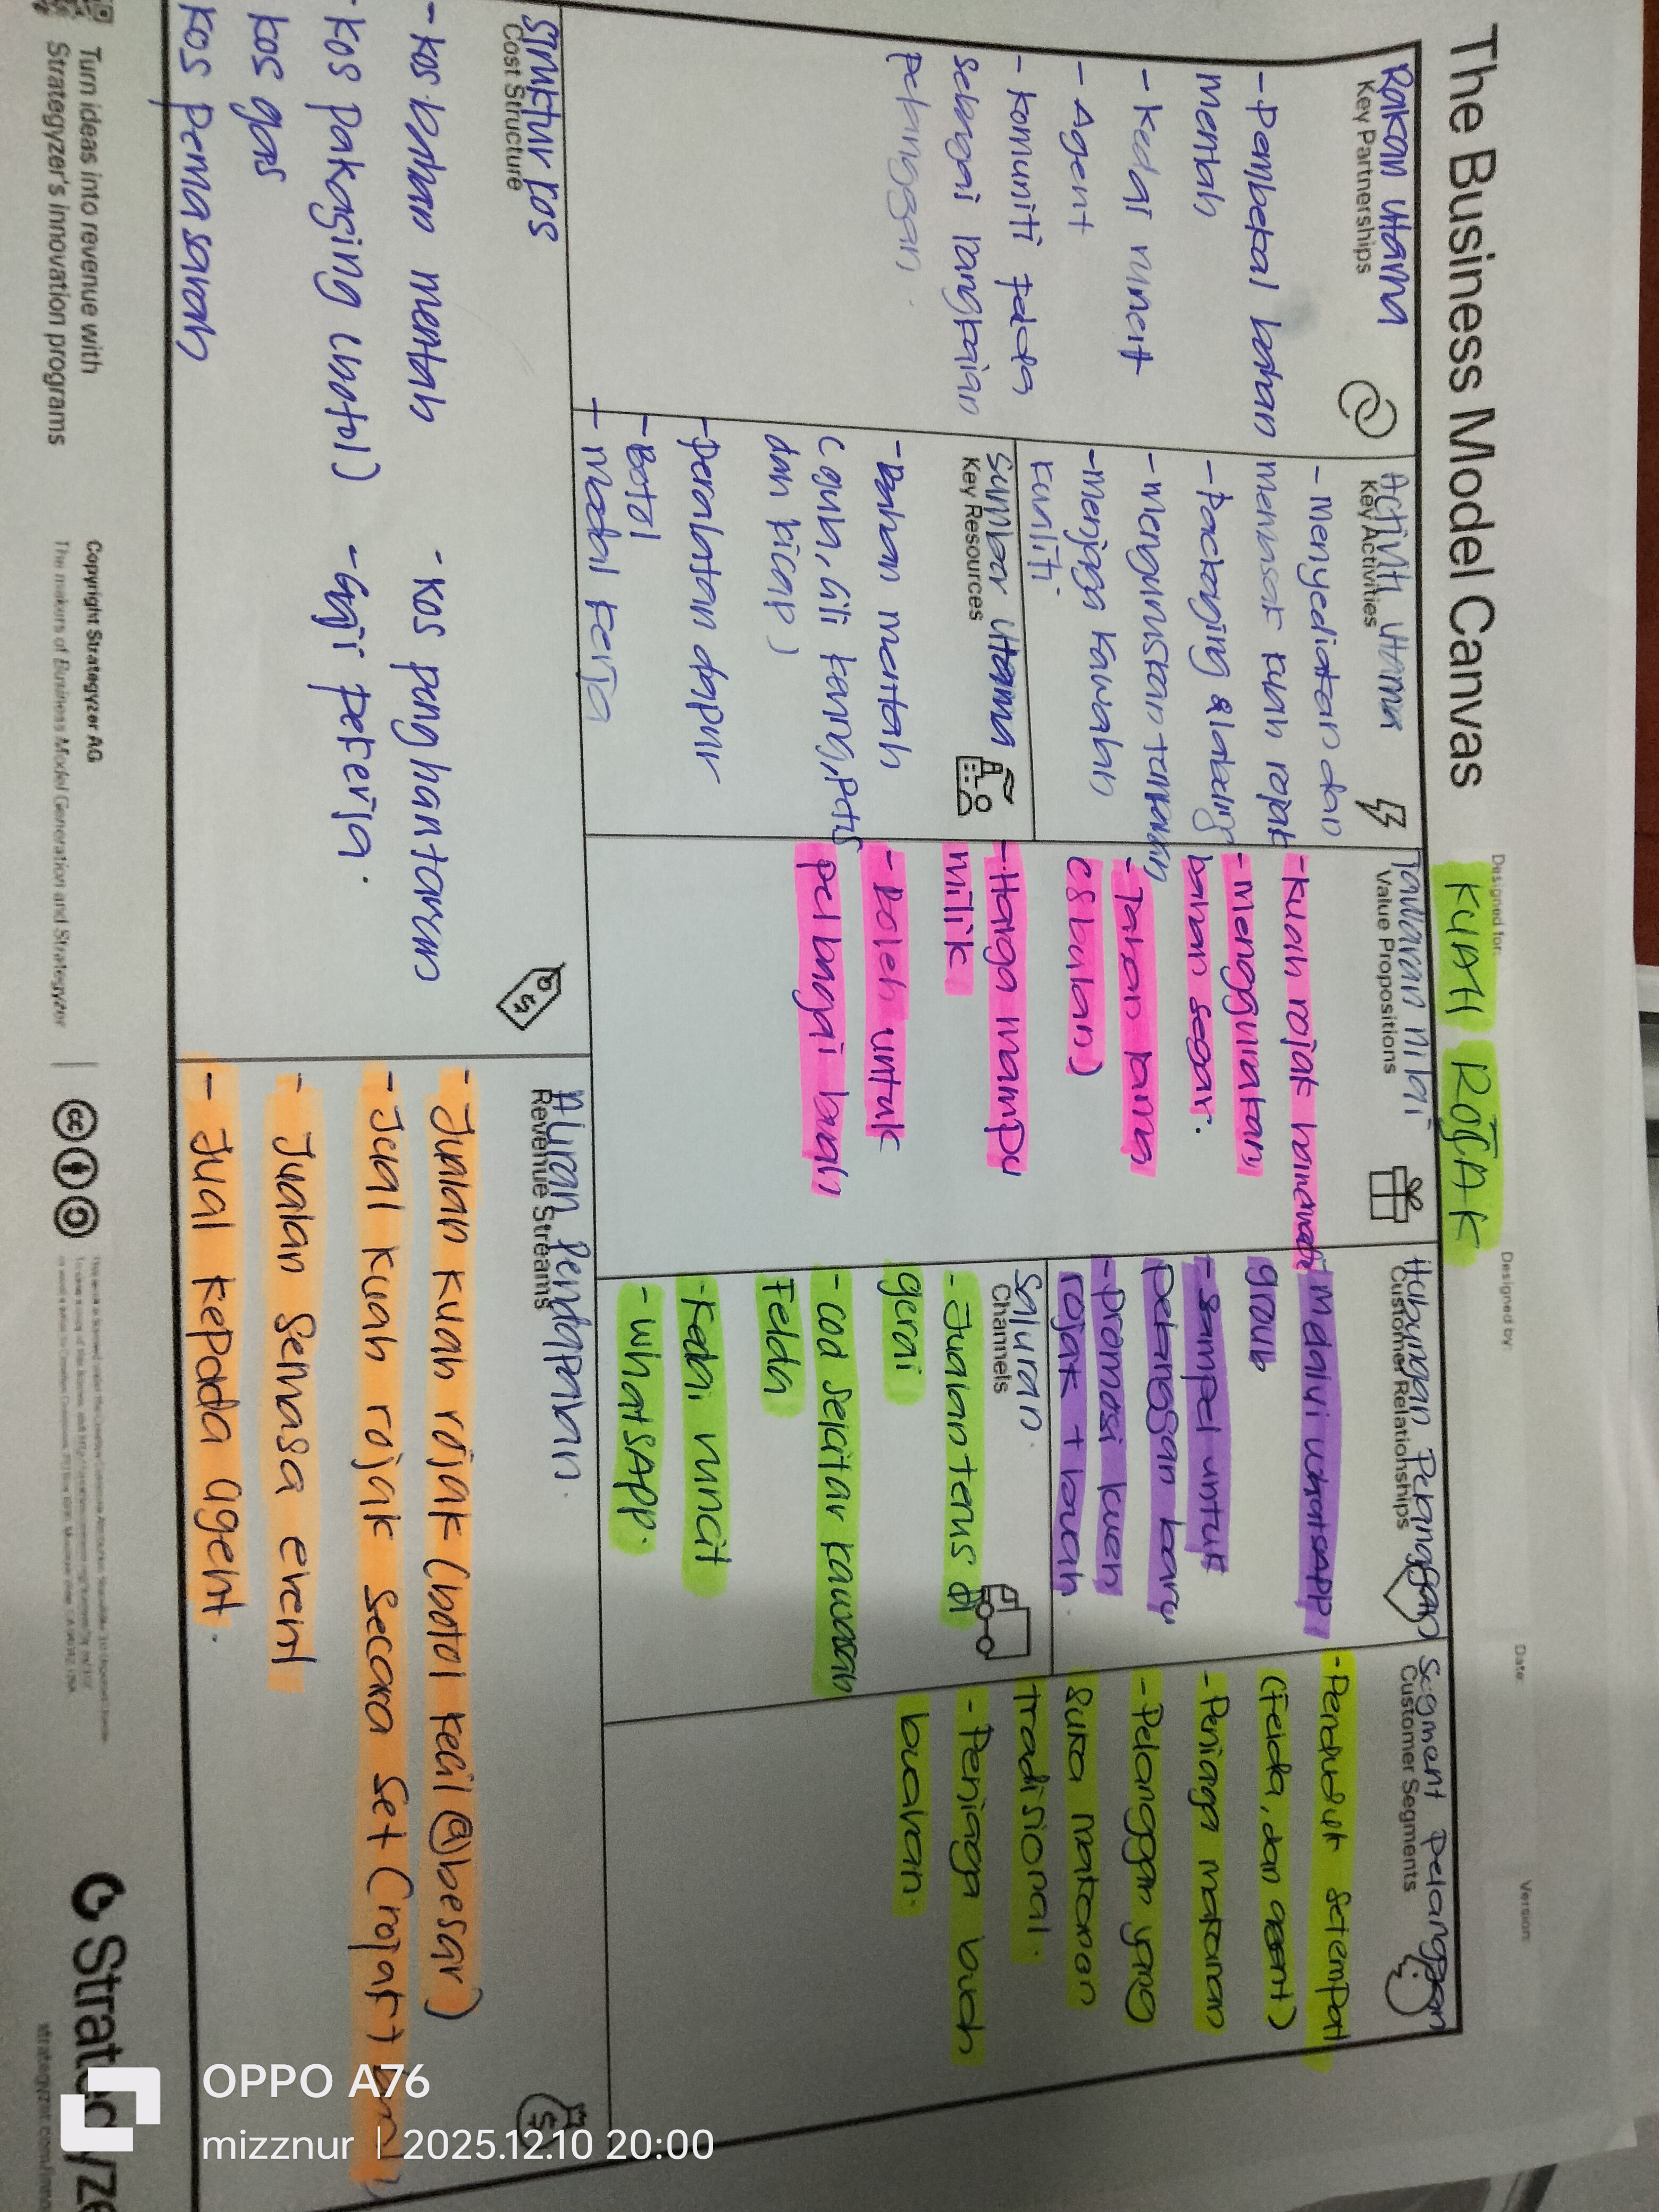 The Business Model Canvas
Designed for:
KUAH ROJAK
Designed by:
Date:
Version:
Rakan utama
Key Partnerships
- Pembekal bahan
mentah
- Kedai runcit
- Agent
- Komuniti felda
sebagai rangkaian
pelanggan.
Activiti utama
Key Activities
- menyediakan dan
memasak kuah rojak
- Packaging & labeling
- menguruskan tempahan
- menjaga kawalan
kualiti.
Sumber utama
Key Resources
- Bahan mentah
(gula, cili kering, petis
dan kicap)
- Peralatan dapur
- Botol
- Modal kerja
Tawaran nilai
Value Propositions
- Kuah rojak homemade
- menggunakan
bahan segar.
- Tahan lama
(3 bulan)
- Harga mampu
milik
- boleh untuk
pelbagai buah
Hubungan Pelanggan
Customer Relationships
- melalui whatsapp
group
- sampel untuk
pelanggan baru
- promosi kuah
rojak + buah.
Saluran.
Channels
- Jualan terus di
gerai
- cod sekitar kawasan
Felda
- Kedai runcit
- WhatsApp.
Segment pelanggan
Customer Segments
- Penduduk setempat
(Felda, dan agent)
- Peniaga makanan
- Pelanggan yang
suka makanan
tradisional.
- Peniaga buah
buahan.
Struktur kos
Cost Structure
- kos bahan mentah
- kos pakaging (botol)
kos gas
kos pemasaran
- kos penghantaran
- Gaji pekerja.
Aliran Pendapatan.
Revenue Streams
- Jualan kuah rojak (botol kecil @ besar)
- Jual kuah rojak secara set (rojak +
- Jualan semasa event
- Jual kepada agent.
Turn ideas into revenue with
Strategyzer's innovation programs
Copyright Strategyzer AG
The makers of Business Model Generation and Strategyzer
strategyzer.com/inno
OPPO A76
mizznur | 2025.12.10 20:00